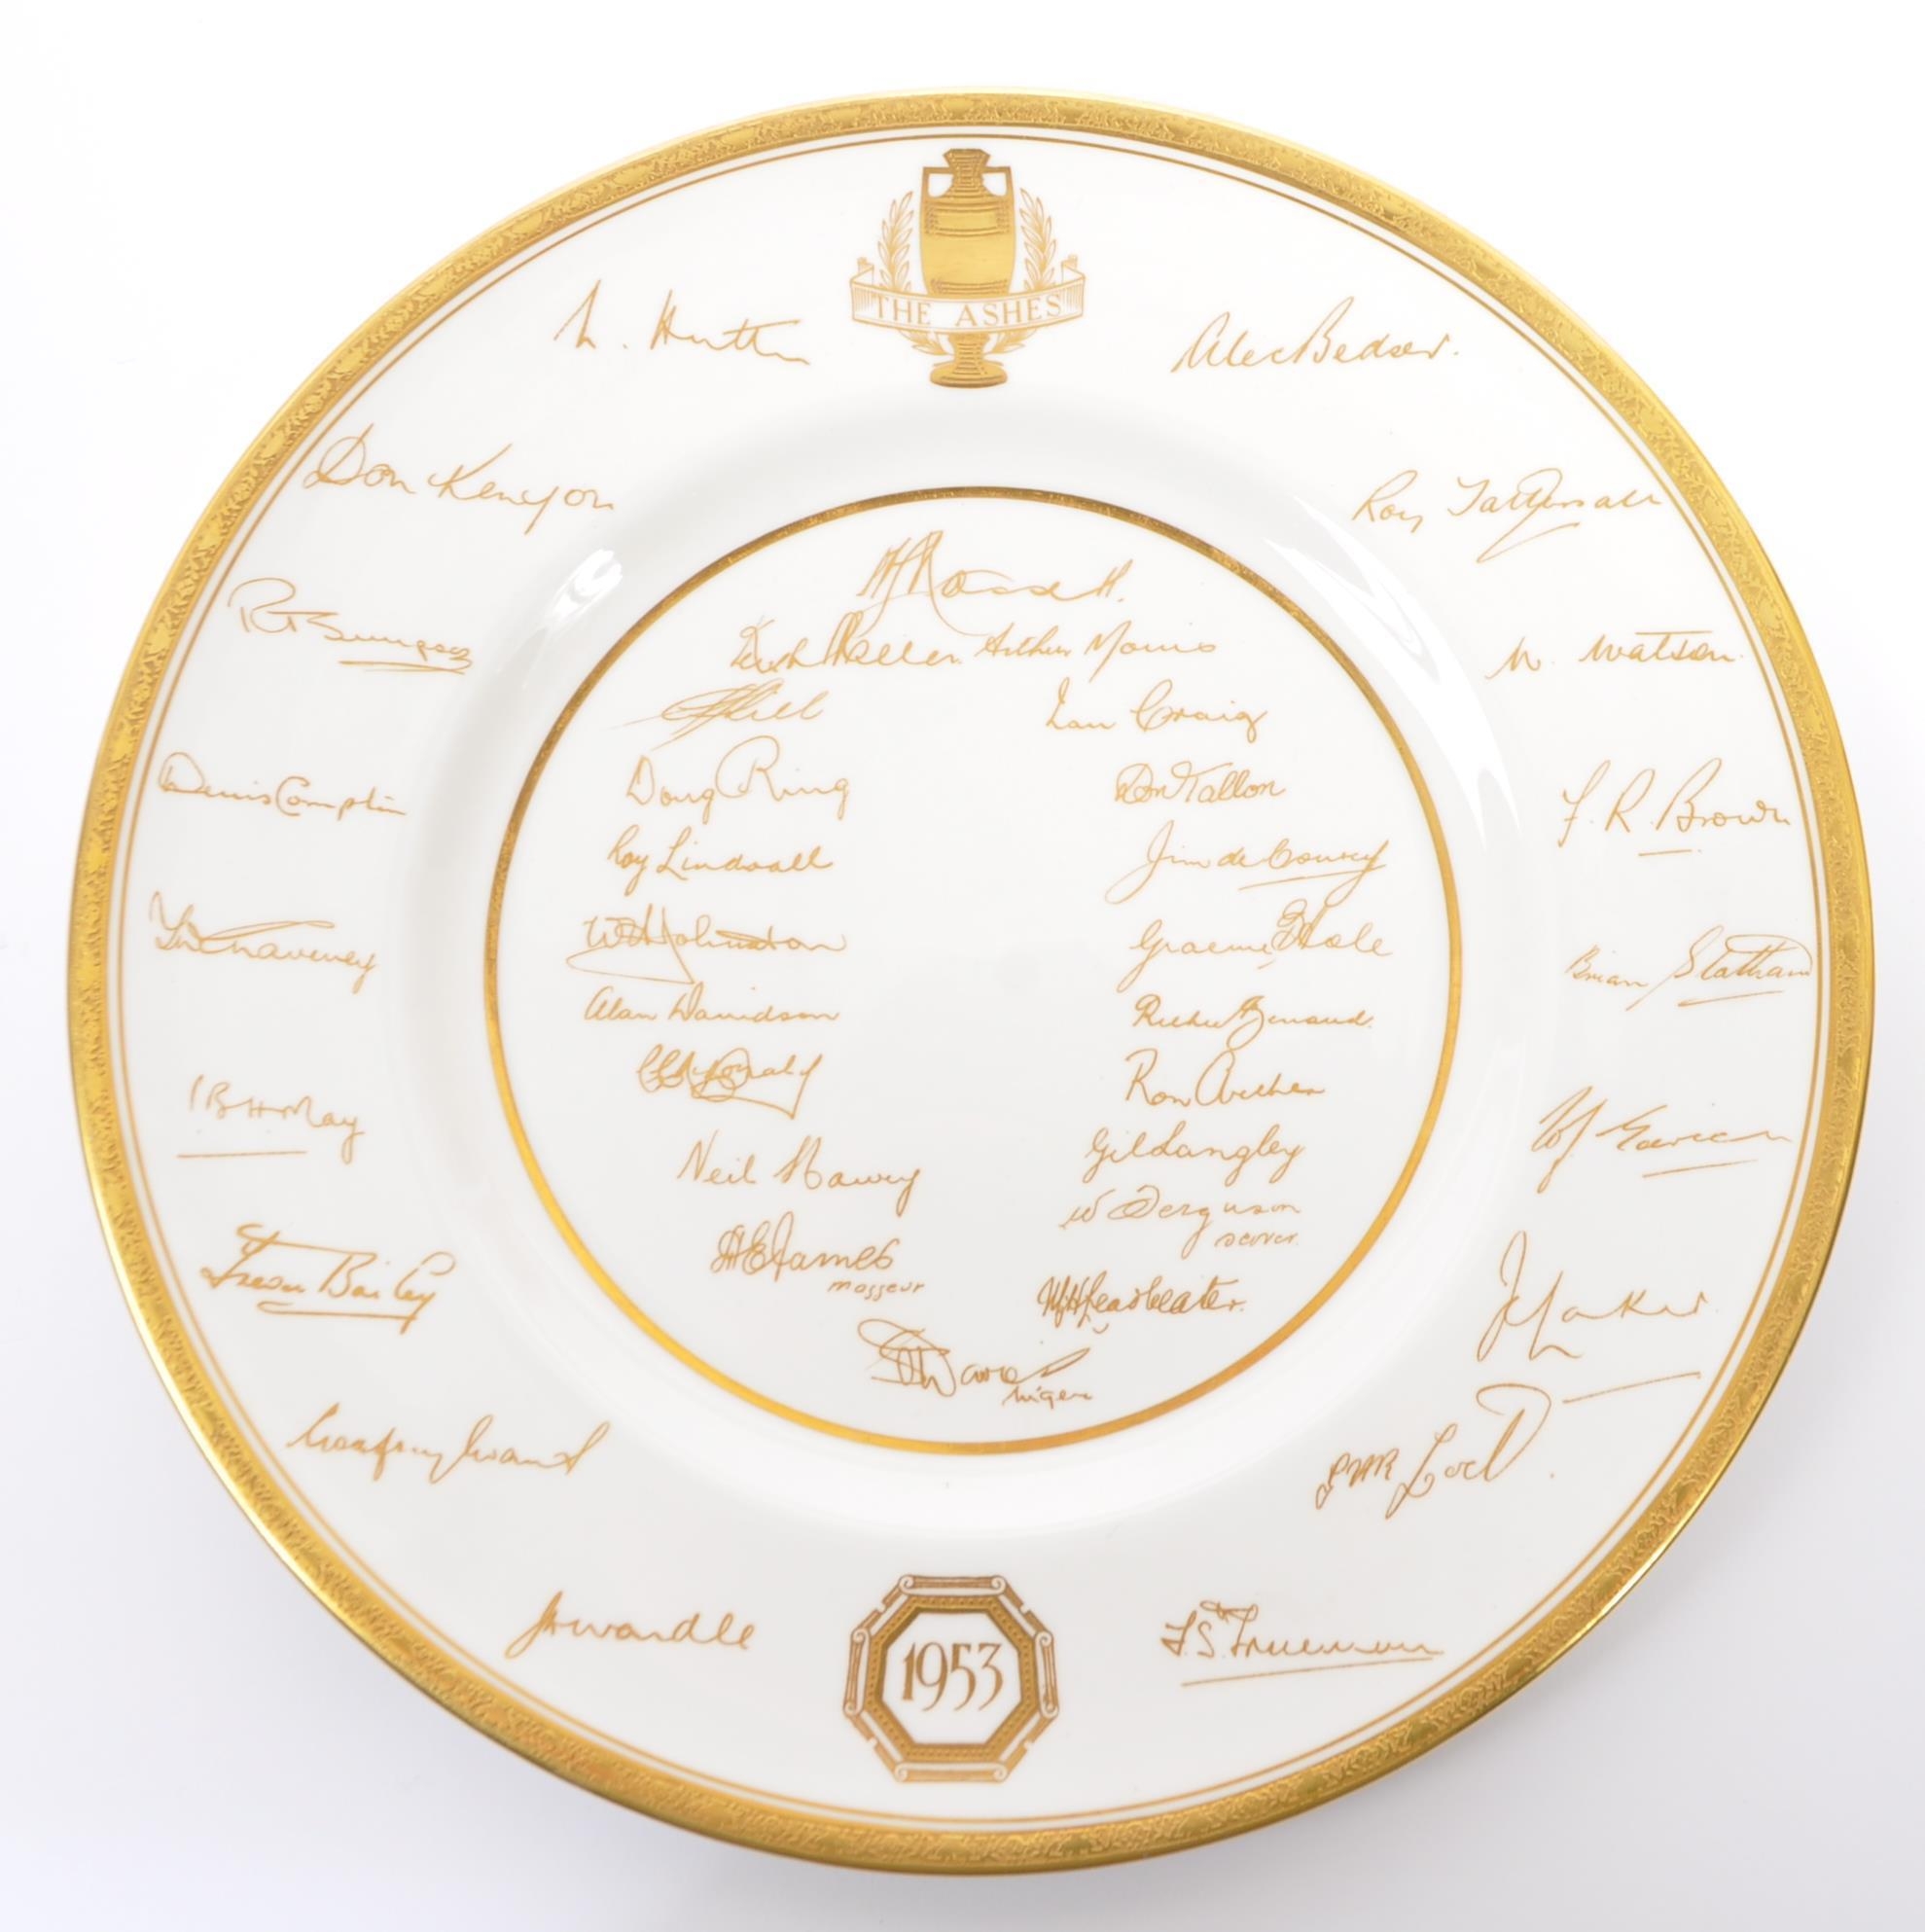 THE ASHES
L. Hutton
Alec Bedser.
Don Kenyon
Roy Tattersall
R T Simpson
W. Watson
Denis Compton
F. R. Brown
T W Graveney
Brian Statham
P B H May
Trevor Bailey
J C Laker
Godfrey Evans
G A R Lock
J H Wardle
F. S. Trueman
1953
A L Hassett.
Keith Miller Arthur Morris
J C Hill
Ian Craig
Doug Ring
Don Tallon
Ray Lindwall
Jim de Courcy
W A Johnston
Graeme B Hole
Alan Davidson
Richie Benaud
C C McDonald
Ron Archer
Neil Harvey
Gil Langley
W Ferguson
scorer
A E James
masseur
G A Davies
M'ger